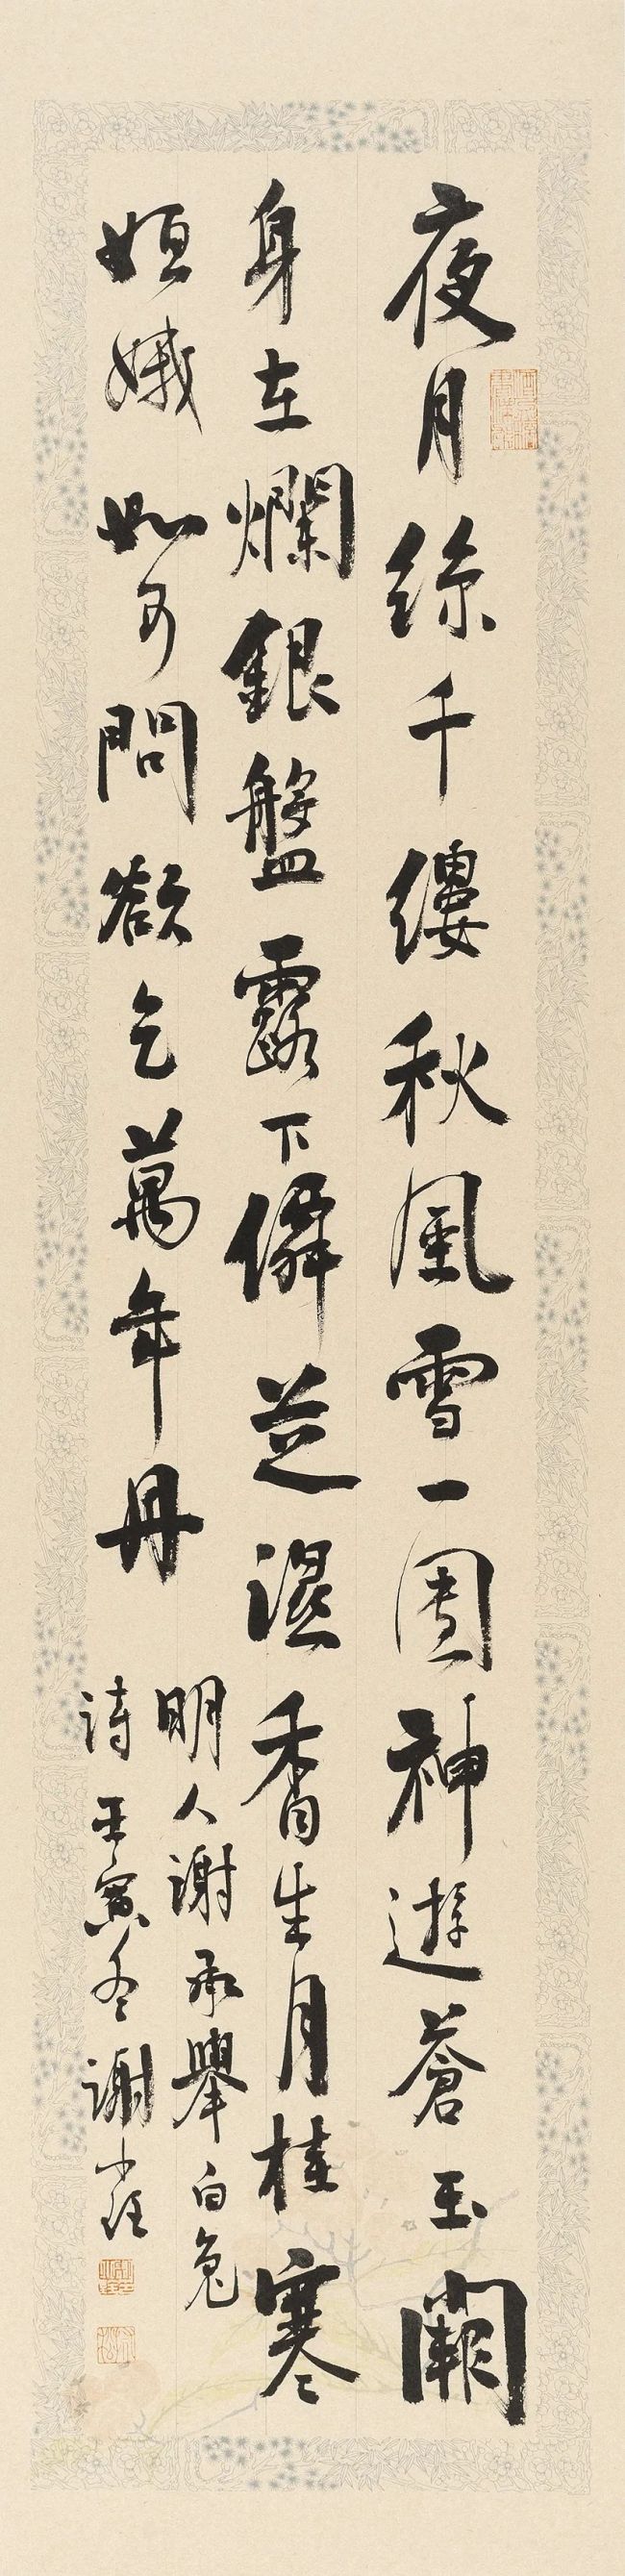 夜月絲千縷秋風雪一團神遊蒼玉闕
身在爛銀盤露下僊芝濕香生月桂寒
姮娥如可問欲乞萬年丹
明人謝承舉白兔
詩壬寅冬謝小